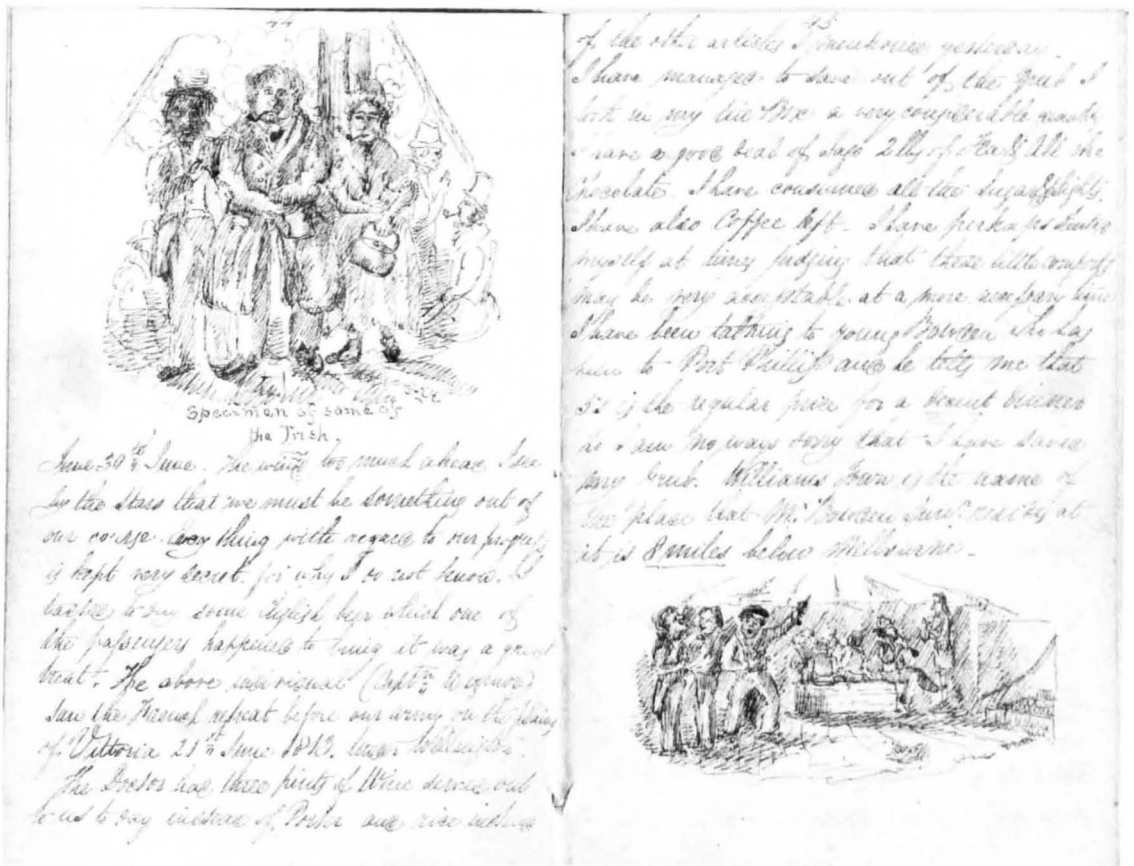 44
Specimen of some of
the Irish.
June 30th June. The wind too much ahead I see
by the Stars that we must be something out of
our course. Every thing with regard to our progress
is kept very secret. for why I do not know. I
to day some English beer which one of
the passengers happened to bring it was a great
treat. The above individual (Captn
saw the French retreat before our army on the plains
of Vittoria 21st June 1813. Under Wellington
The Doctor had three pints of Wine served out
to us to day instead of Porter and rice instead
45
of the other articles I mentioned yesterday.
I have managed to save out of the Grub I
took in my tin Box a very considerable quantity
I have a good deal of Sago 2lbs of Tea & all the
Chocolate. I have consumed all the Sugar & lights.
I have also Coffee left. I have perhaps
myself at times judging that these little comforts
may be very acceptable at a more necessary time
I have been talking to young Bowden who has
been to Port Phillip and he tells me that
5s is the regular price for a decent dinner
so I am no ways sorry that I have saved
my Grub. Williams Town is the name of
the place that Mr. Bowden Junr. resides at
it is 8 miles below Melbourne.